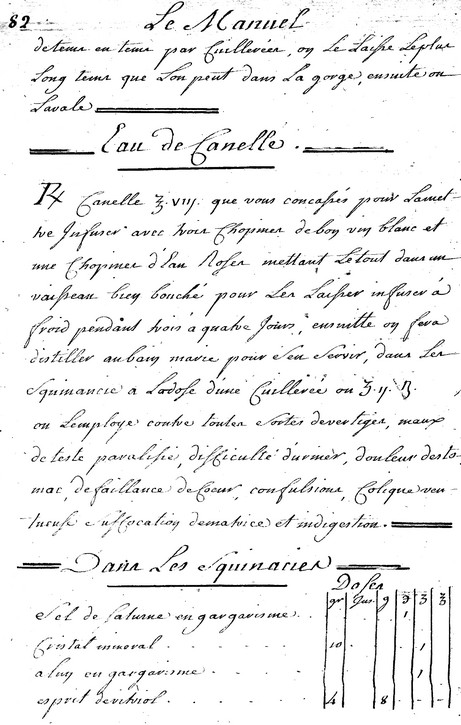 82 Le Manuel
detems en tems par Cuillereés, on Le Laisse Leplus
Long tems que Lon peut dans La gorge, ensuite on
Lavale
Eau de Canelle.
℞ Canelle ℥.viij. que vous concassés pour Lamet-
tre Infuser avec trois Chopines de bon vin blanc et
une Chopines d'Eau Roses mettant Letout dans un
vaisseau bien bouché pour Les Laisser infuser à
froid pendant trois à quatre Jours, ensuitte on fera
distiller aubain marie pour Sen Servir, dans Les
Squinancie a Ladose d'une Cuilleréé ou ʒ.ij.ß.
on Lemploye contre toutes Sortes devertiges, maux
de teste paralisie, difficulté d'uriner, douleur desto-
mac, defaillance deCoeur, confulsions, Colique ven-
teuse Suffocation dematrice et indigestion.
Dans Les Squinacies
Doses
gr Gus. g ℈ ʒ ℥
Sel de Saturne en gargarisme .. 1
Cristal mineral . . . . . 10 1
alun en gargarisme . . . . 1
esprit devitriol . . . . . 4 8